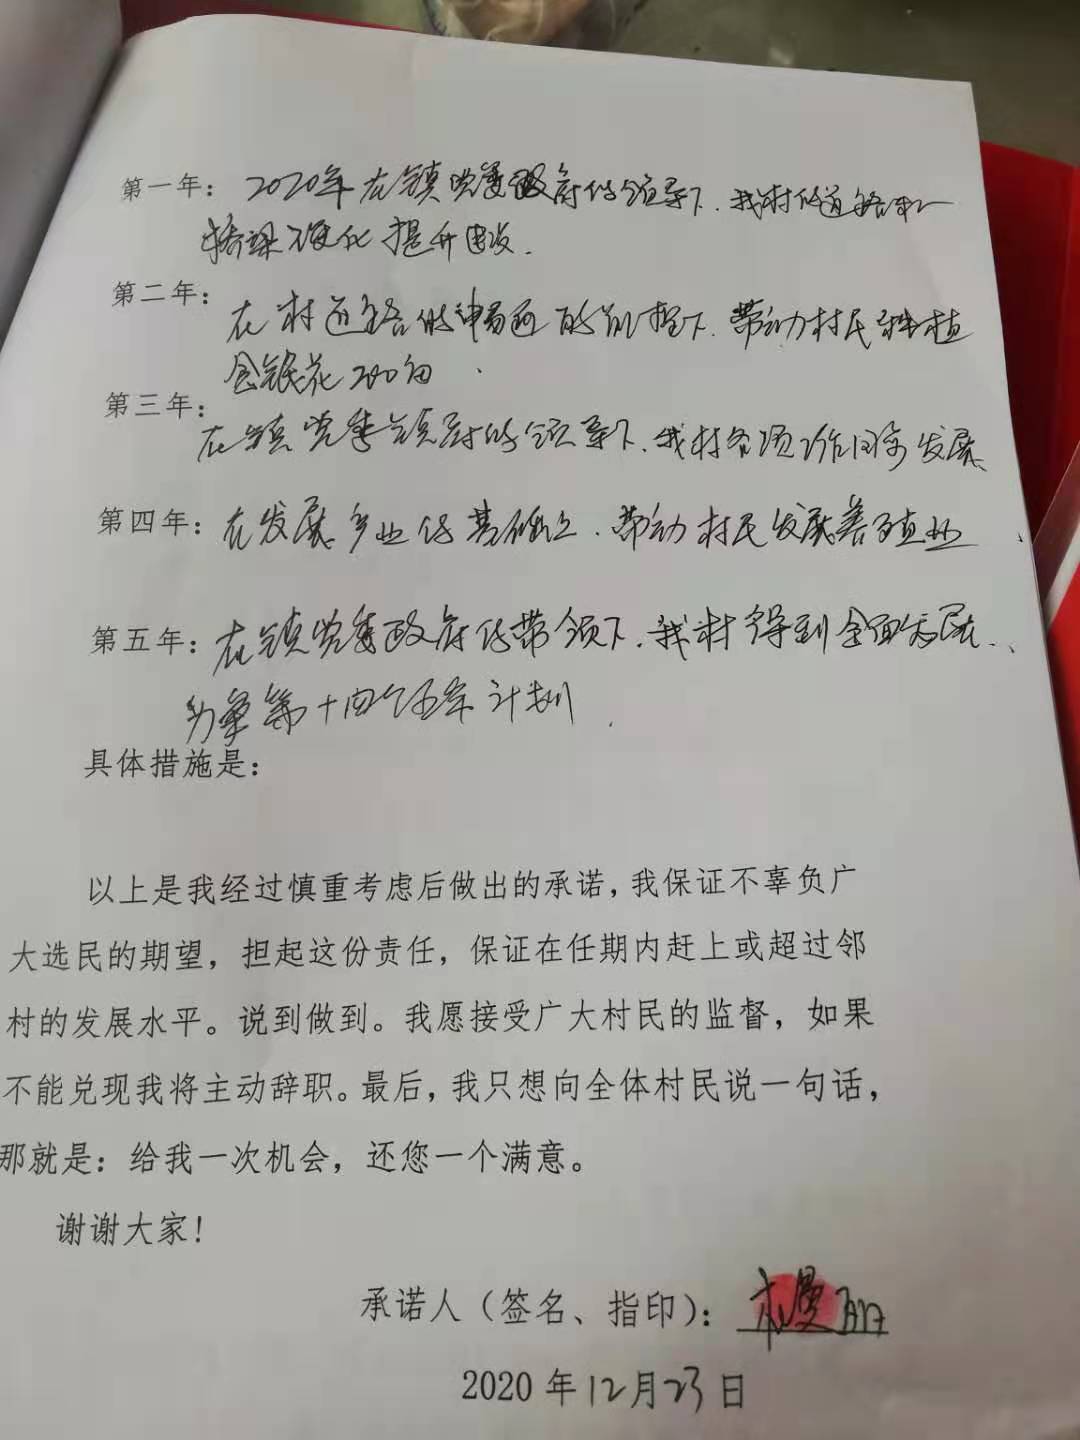 第一年：2020年在镇党委政府的领导下.我村的道路和
桥梁硬化提升
第二年：在村道路的畅通的前提下.带动村民种植
金银花200亩.
第三年：在镇党委镇府的领导下.我村各项工作同步发展
第四年：在发展产业的基础上.带动村民发展养殖业
第五年：在镇党委政府的带领下.我村得到全面发展..
力争第十四个五年计划.
具体措施是：
以上是我经过慎重考虑后做出的承诺，我保证不辜负广
大选民的期望，担起这份责任，保证在任期内赶上或超过邻
村的发展水平。说到做到。我愿接受广大村民的监督，如果
不能兑现我将主动辞职。最后，我只想向全体村民说一句话，
那就是：给我一次机会，还您一个满意。
谢谢大家！
承诺人（签名、指印）：
2020年12月23日